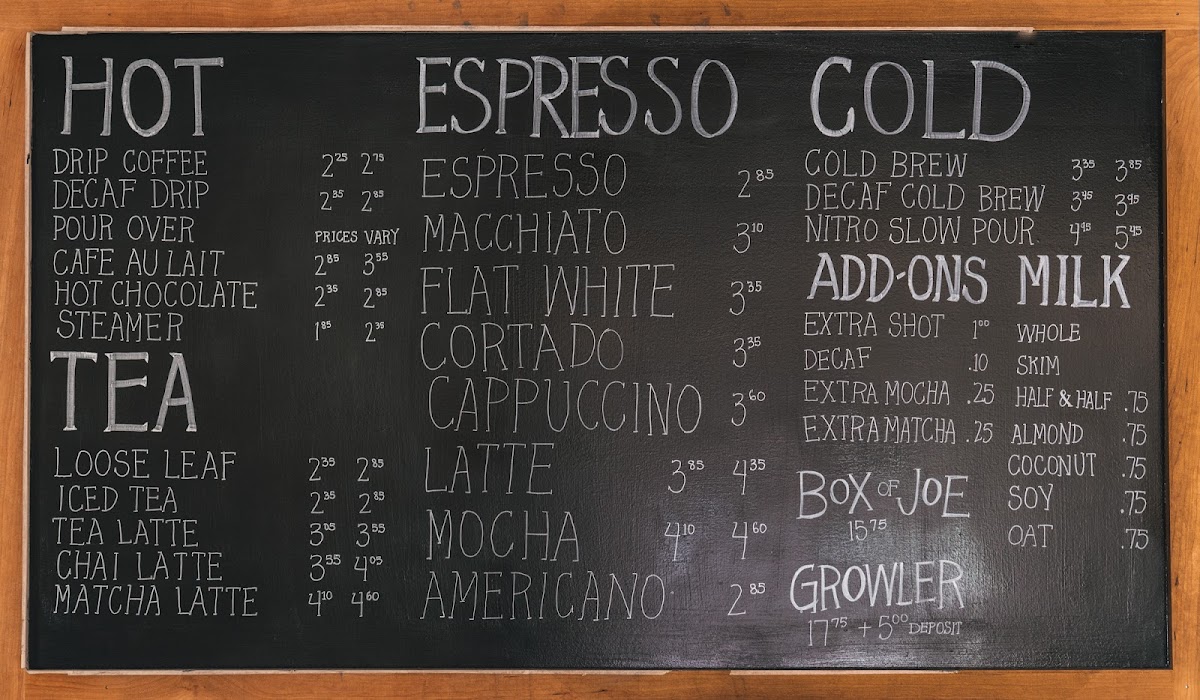 HOT
DRIP COFFEE 2.25 2.75
DECAF DRIP 2.35 2.85
POUR OVER PRICES VARY
CAFE AU LAIT 2.85 3.55
HOT CHOCOLATE 2.35 2.85
STEAMER 1.85 2.35
TEA
LOOSE LEAF 2.35 2.85
ICED TEA 2.35 2.85
TEA LATTE 3.05 3.55
CHAI LATTE 3.55 4.05
MATCHA LATTE 4.10 4.60
ESPRESSO
ESPRESSO 2.85
MACCHIATO 3.10
FLAT WHITE 3.35
CORTADO 3.35
CAPPUCCINO 3.60
LATTE 3.85 4.35
MOCHA 4.10 4.60
AMERICANO 2.85
COLD
COLD BREW 3.35 3.85
DECAF COLD BREW 3.45 3.95
NITRO SLOW POUR 4.95 5.45
ADD-ONS
EXTRA SHOT 1.00
DECAF .10
EXTRA MOCHA .25
EXTRA MATCHA .25
MILK
WHOLE
SKIM
HALF & HALF .75
ALMOND .75
COCONUT .75
SOY .75
OAT .75
BOX OF JOE
15.75
GROWLER
17.75 + 5.00 DEPOSIT